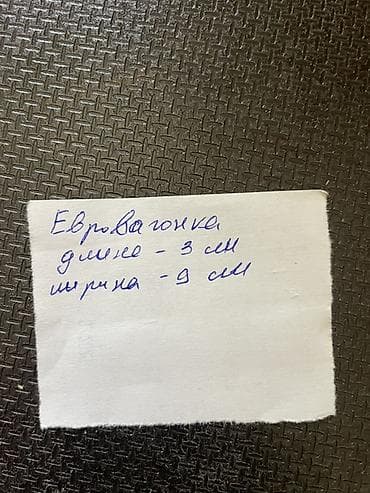 Евровагонка
длина - 3 м
ширина - 9 см